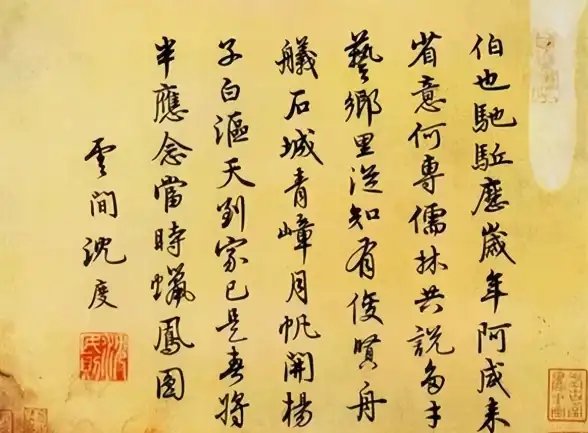 伯也馳驅歷歲年阿咸來
省意何專儒林共說多才
藝鄉里從知有俊賢舟
艤石城青嶂月帆開楊
子白漚天到家已是春將
半應念當時蠟鳳圓
雲間沈度